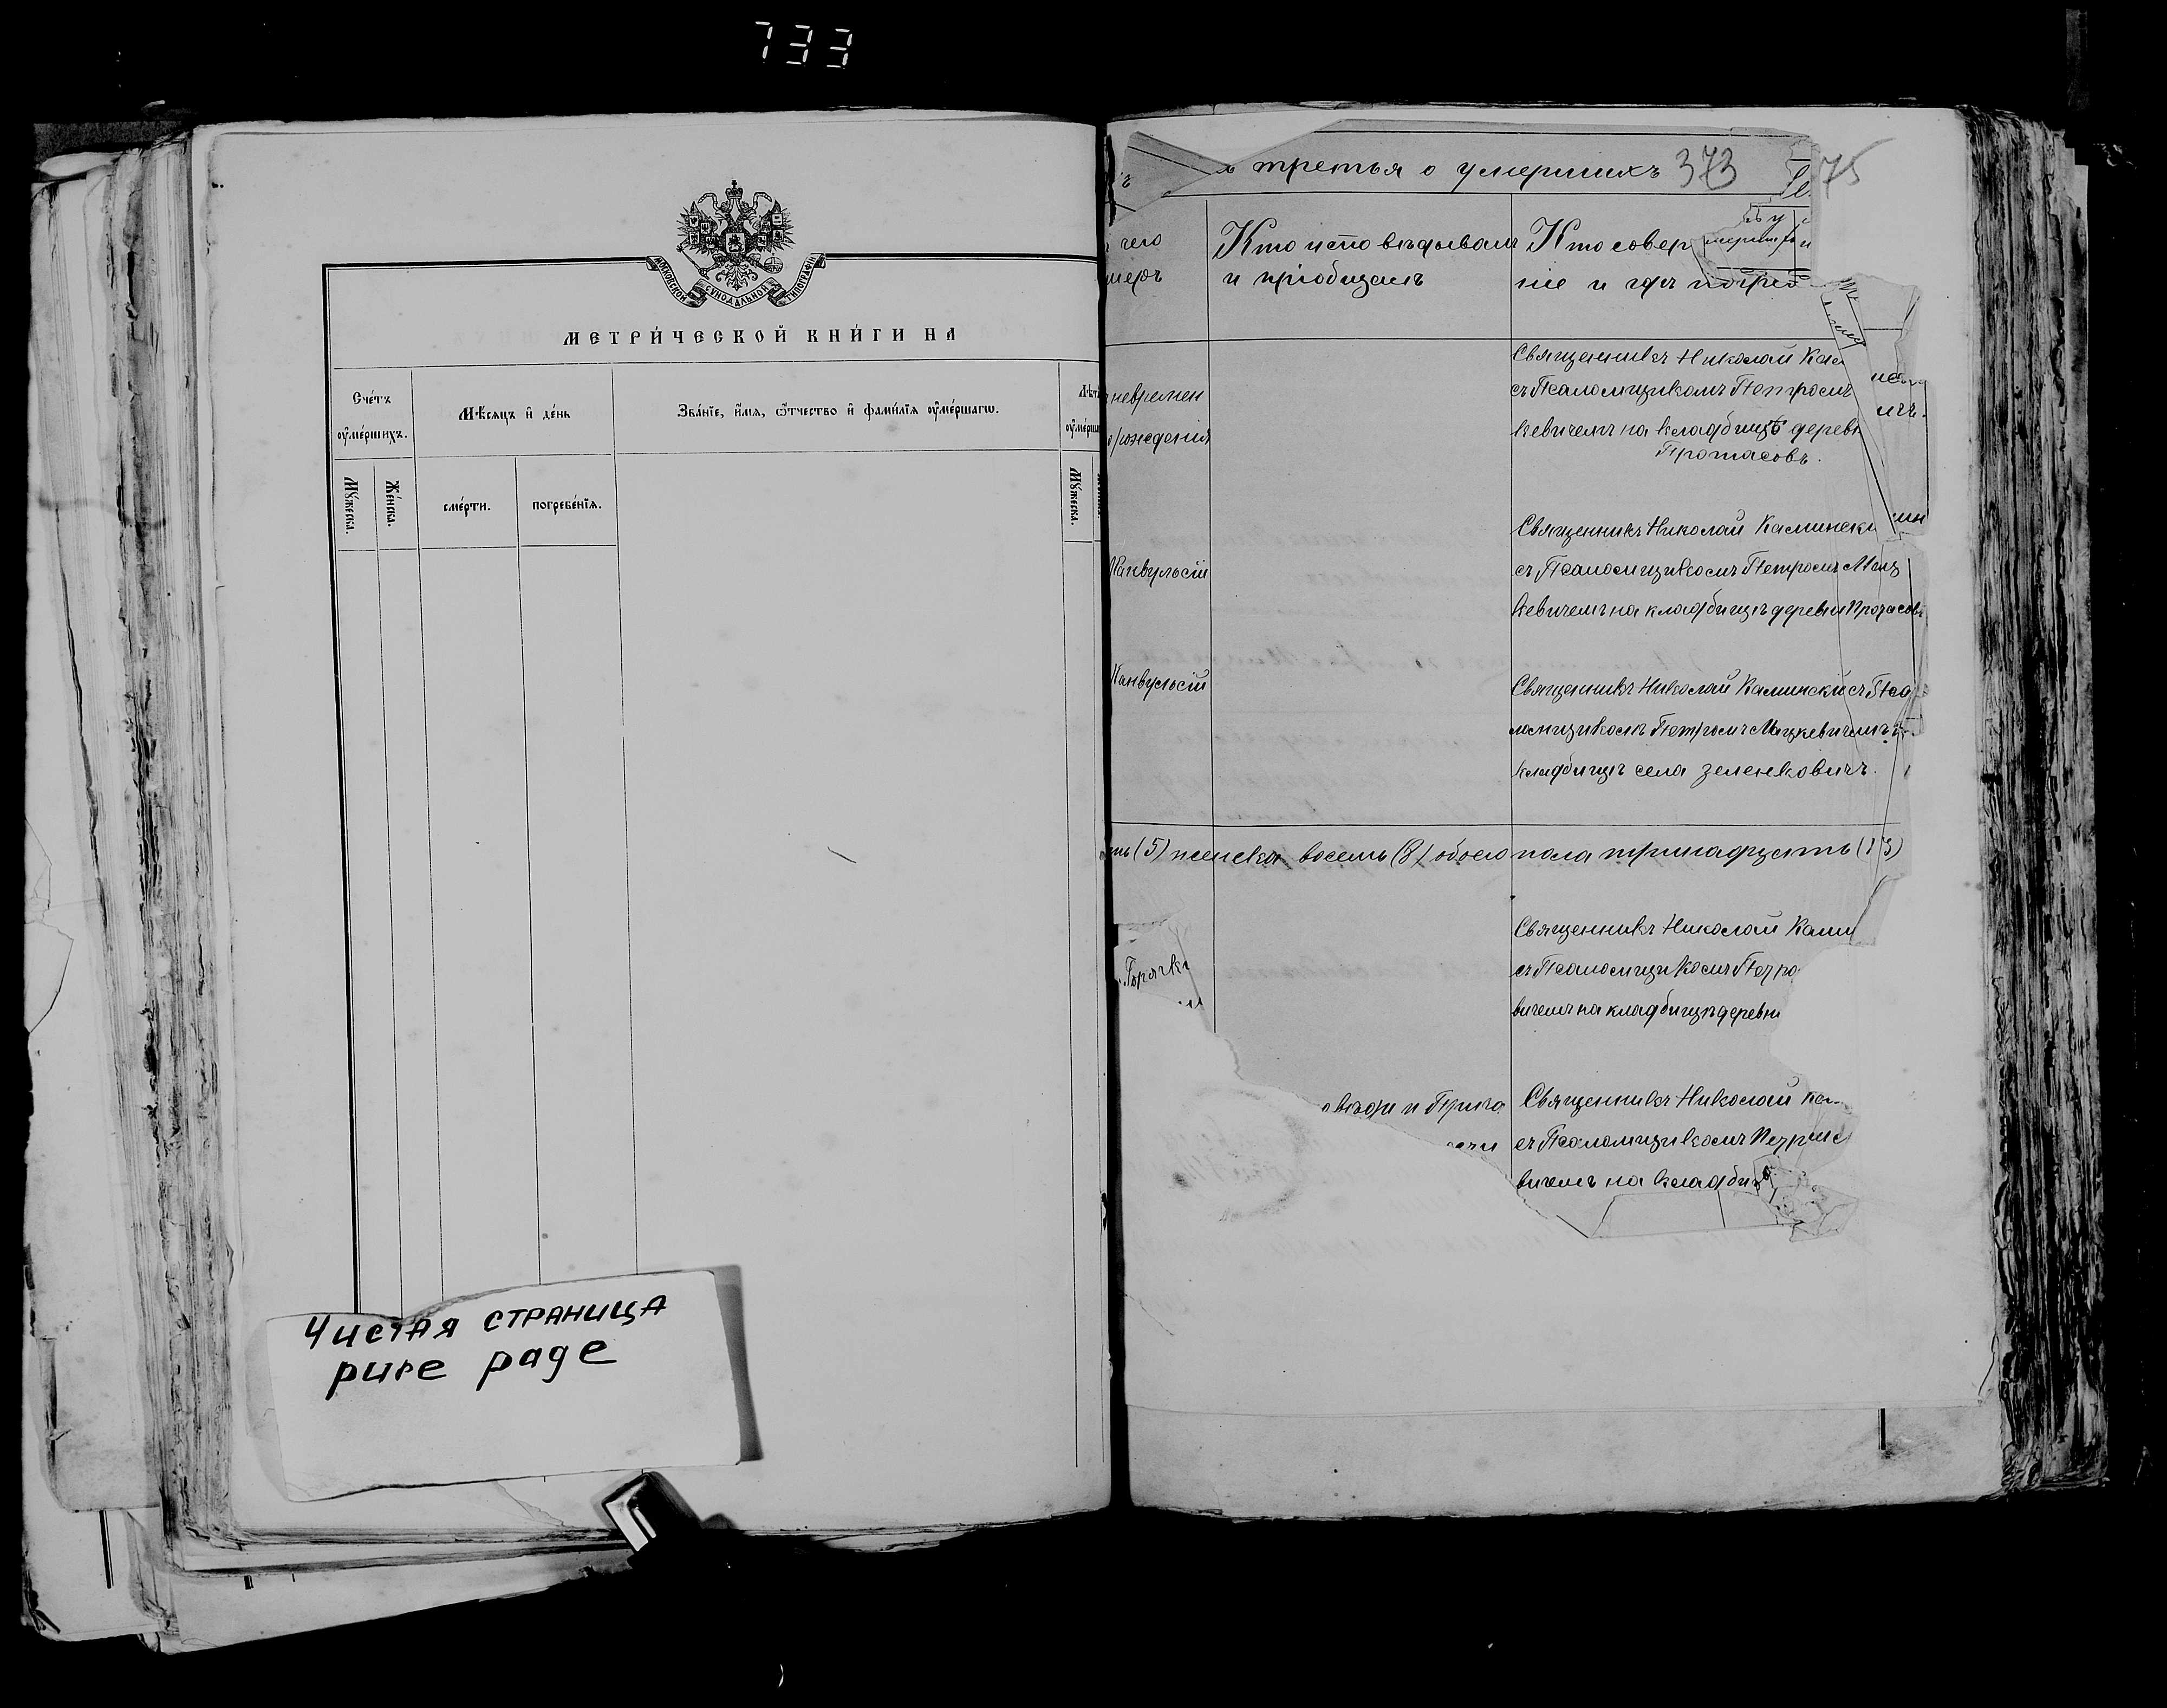 733
МОСКОВСКОЙ СѴНОДАЛЬНОЙ ТИПОГРАФІИ
МЕТРИ́ЧЕСКОЙ КНИ́ГИ НА
Сче́тъ оу҆ме́ршихъ.
Мѣсяцъ и҆ де́нь
Зва́нїе, и҆́мѧ, ѻ҆́тчество и҆ фами́лїѧ оу҆ме́ршагѡ.
Лѣт
оу҆ме́рш
Мꙋ́жеска.
Же́нска.
сме́рти.
погребе́нїѧ.
Мꙋ́жеска.
Чистая страница
pure page
третья о умершихъ 373 75
чего
меръ
Кто исповѣдывалъ
и пріобщалъ
Кто совер
ніе и гдѣ погреб
неврем ен
рожденія
Священникъ Николай Кам
съ Псаломщикомъ Петромъ
кевичемъ на кладбищѣ дерев
Протасовъ.
Канвульсій
Священникъ Николай Каминск
съ Псаломщикомъ Петромъ Мац
кевичемъ на кладбищѣ деревни Протасовъ
Канвульсій
Священникъ Николай Каминскій съ Пса
ломщикомъ Петромъ Мацкевичемъ
кладбищѣ села Зеленковичъ.
ть (5) женска восемь (8) обоего пола тринадцать (13)
Горячк
Священникъ Николай Ками
съ Псаломщикомъ Петро
вичемъ на кладбищѣ деревни
Священникъ Николай Ка
съ Псаломщикомъ Петромъ
вичемъ на кладбищ